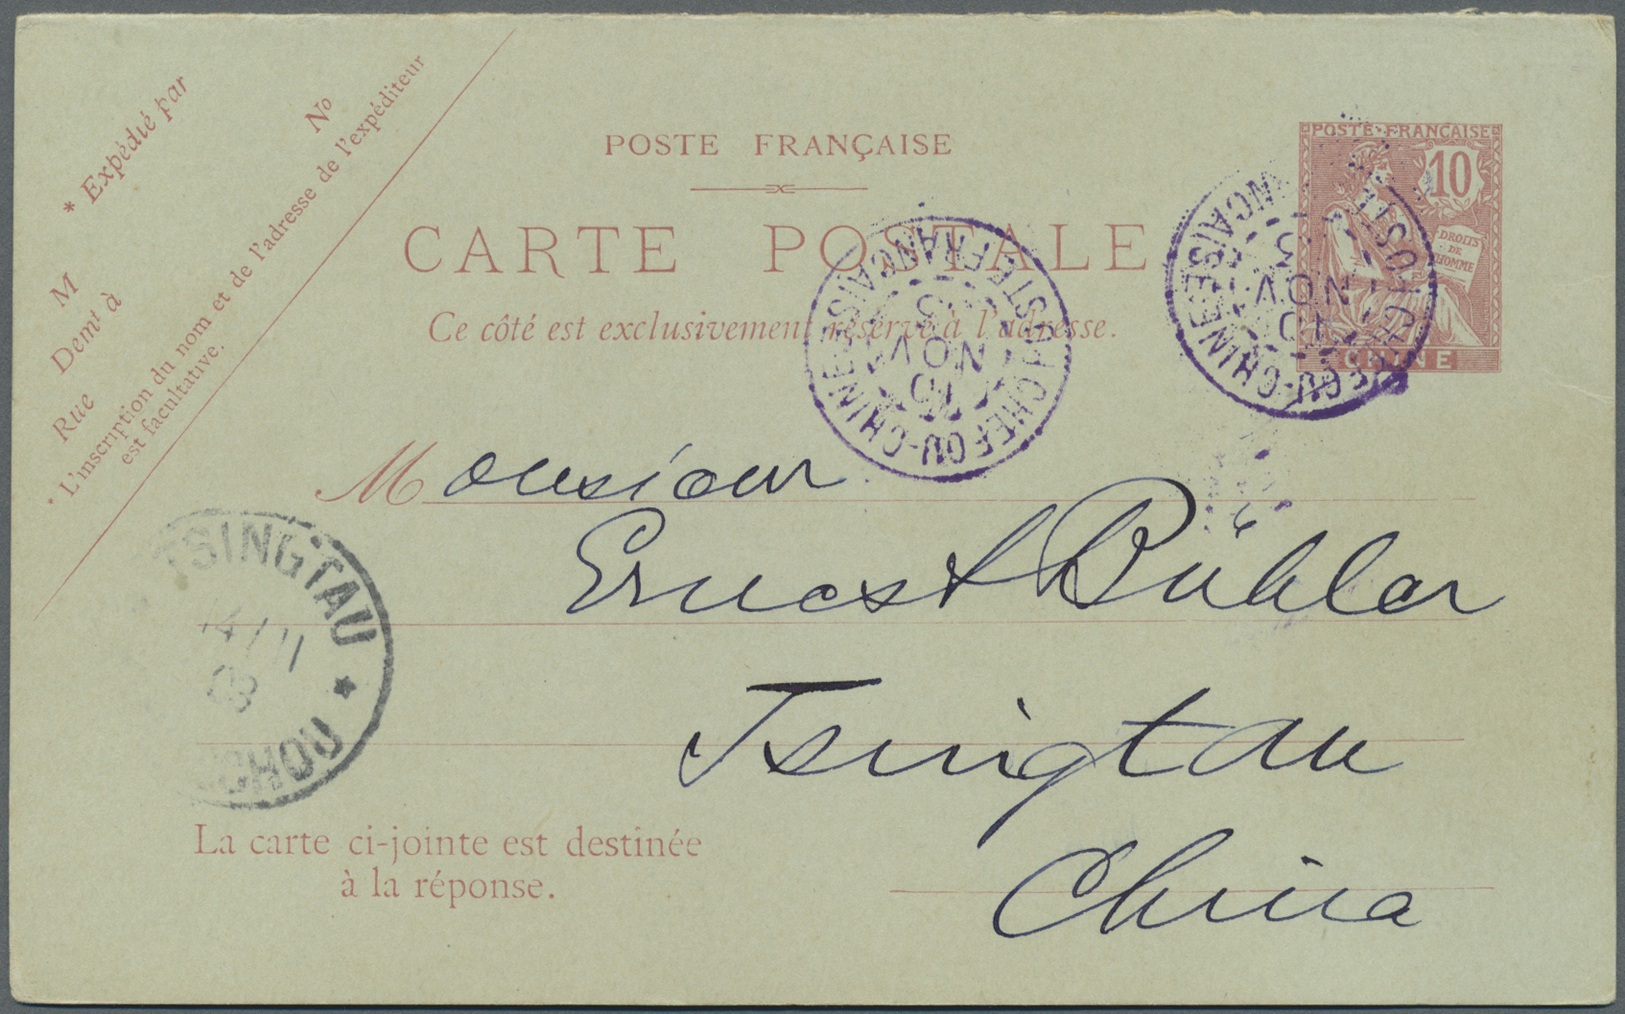 * Expédié par
No
M
Demt à
Rue
* L'inscription du nom et de l'adresse de l'expéditeur
est facultative.
POSTE FRANÇAISE
CARTE POSTALE
Ce côté est exclusivement réservé à l'adresse.
POSTE FRANÇAISE
10
DROITS
DE
L'HOMME
CHINE
TCHEFOU-CHINE
POSTE FRANCAISE
10
NOV
03
TCHEFOU-CHINE
POSTE FRANCAISE
10
NOV
Monsieur
Ernest Bühler
Tsingtau
China
TSINGTAU
14/11
03
La carte ci-jointe est destinée
à la réponse.